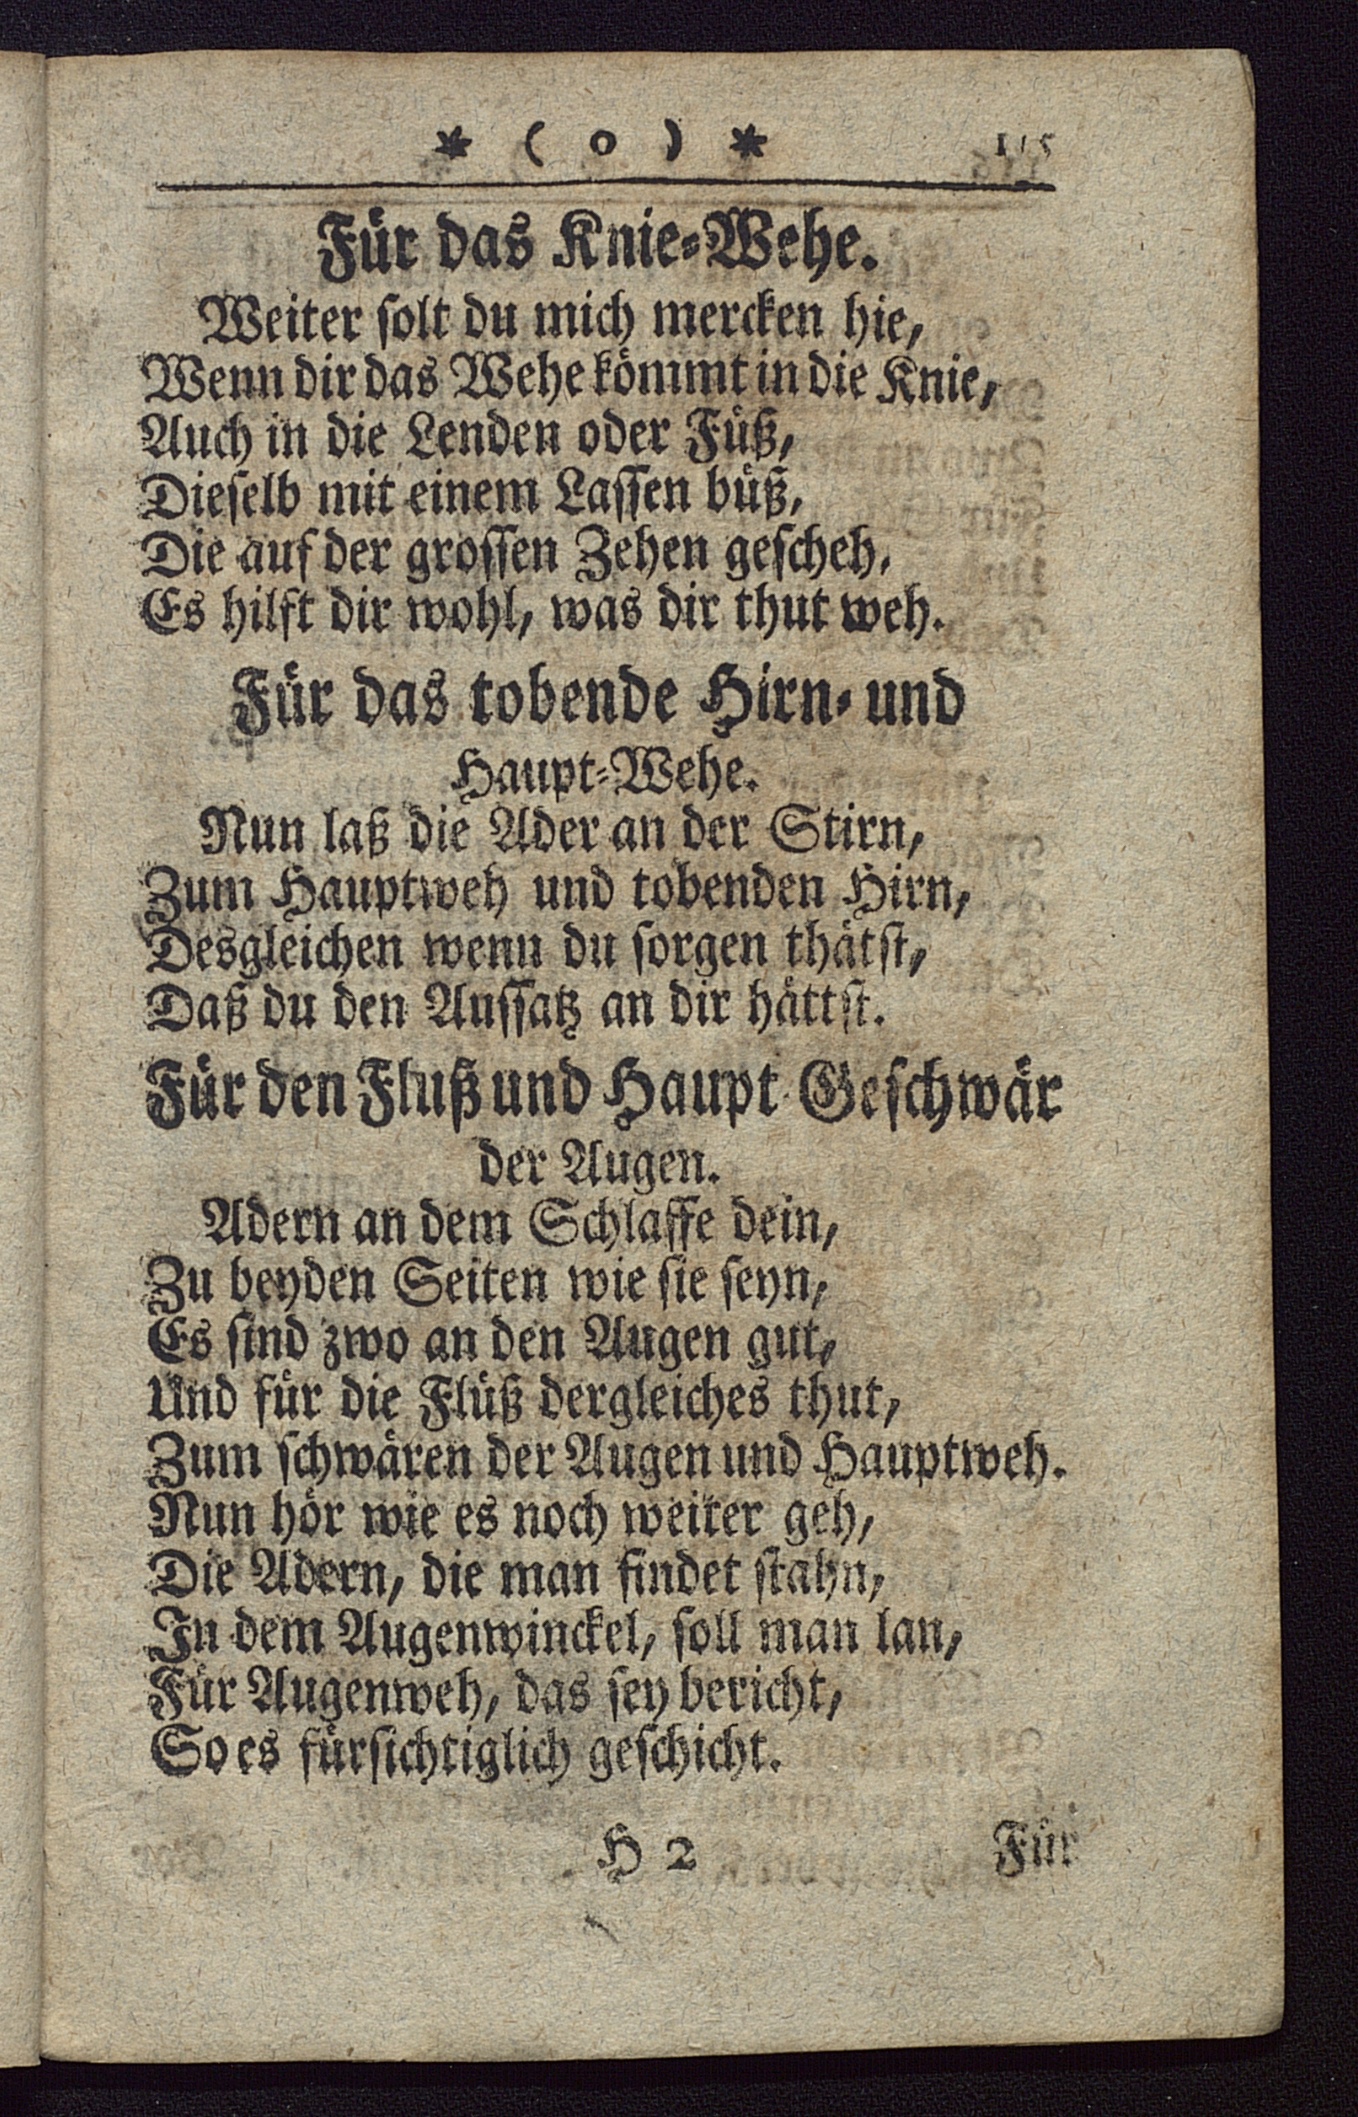 * ( 0 ) * 115
Für das Knie-Wehe.
Weiter solt du mich mercken hie,
Wenn dir das Wehe kömmt in die Knie,
Auch in die Lenden oder Füß,
Dieselb mit einem Lassen büß,
Die auf der grossen Zehen gescheh,
Es hilft dir wohl, was dir thut weh.
Für das tobende Hirn- und
Haupt-Wehe.
Nun laß die Ader an der Stirn,
Zum Hauptweh und tobenden Hirn,
Desgleichen wenn du sorgen thätst,
Daß du den Aussatz an dir hättst.
Für den Fluß und Haupt-Geschwär
der Augen.
Adern an dem Schlaffe dein,
Zu beyden Seiten wie sie seyn,
Es sind zwo an den Augen gut,
Und für die Flüß dergleiches thut,
Zum schwären der Augen und Hauptweh.
Nun hör wie es noch weiter geh,
Die Adern, die man findet stahn,
In dem Augenwinckel, soll man lan,
Für Augenweh, das sey bericht,
So es fürsichtiglich geschicht.
H 2 Für